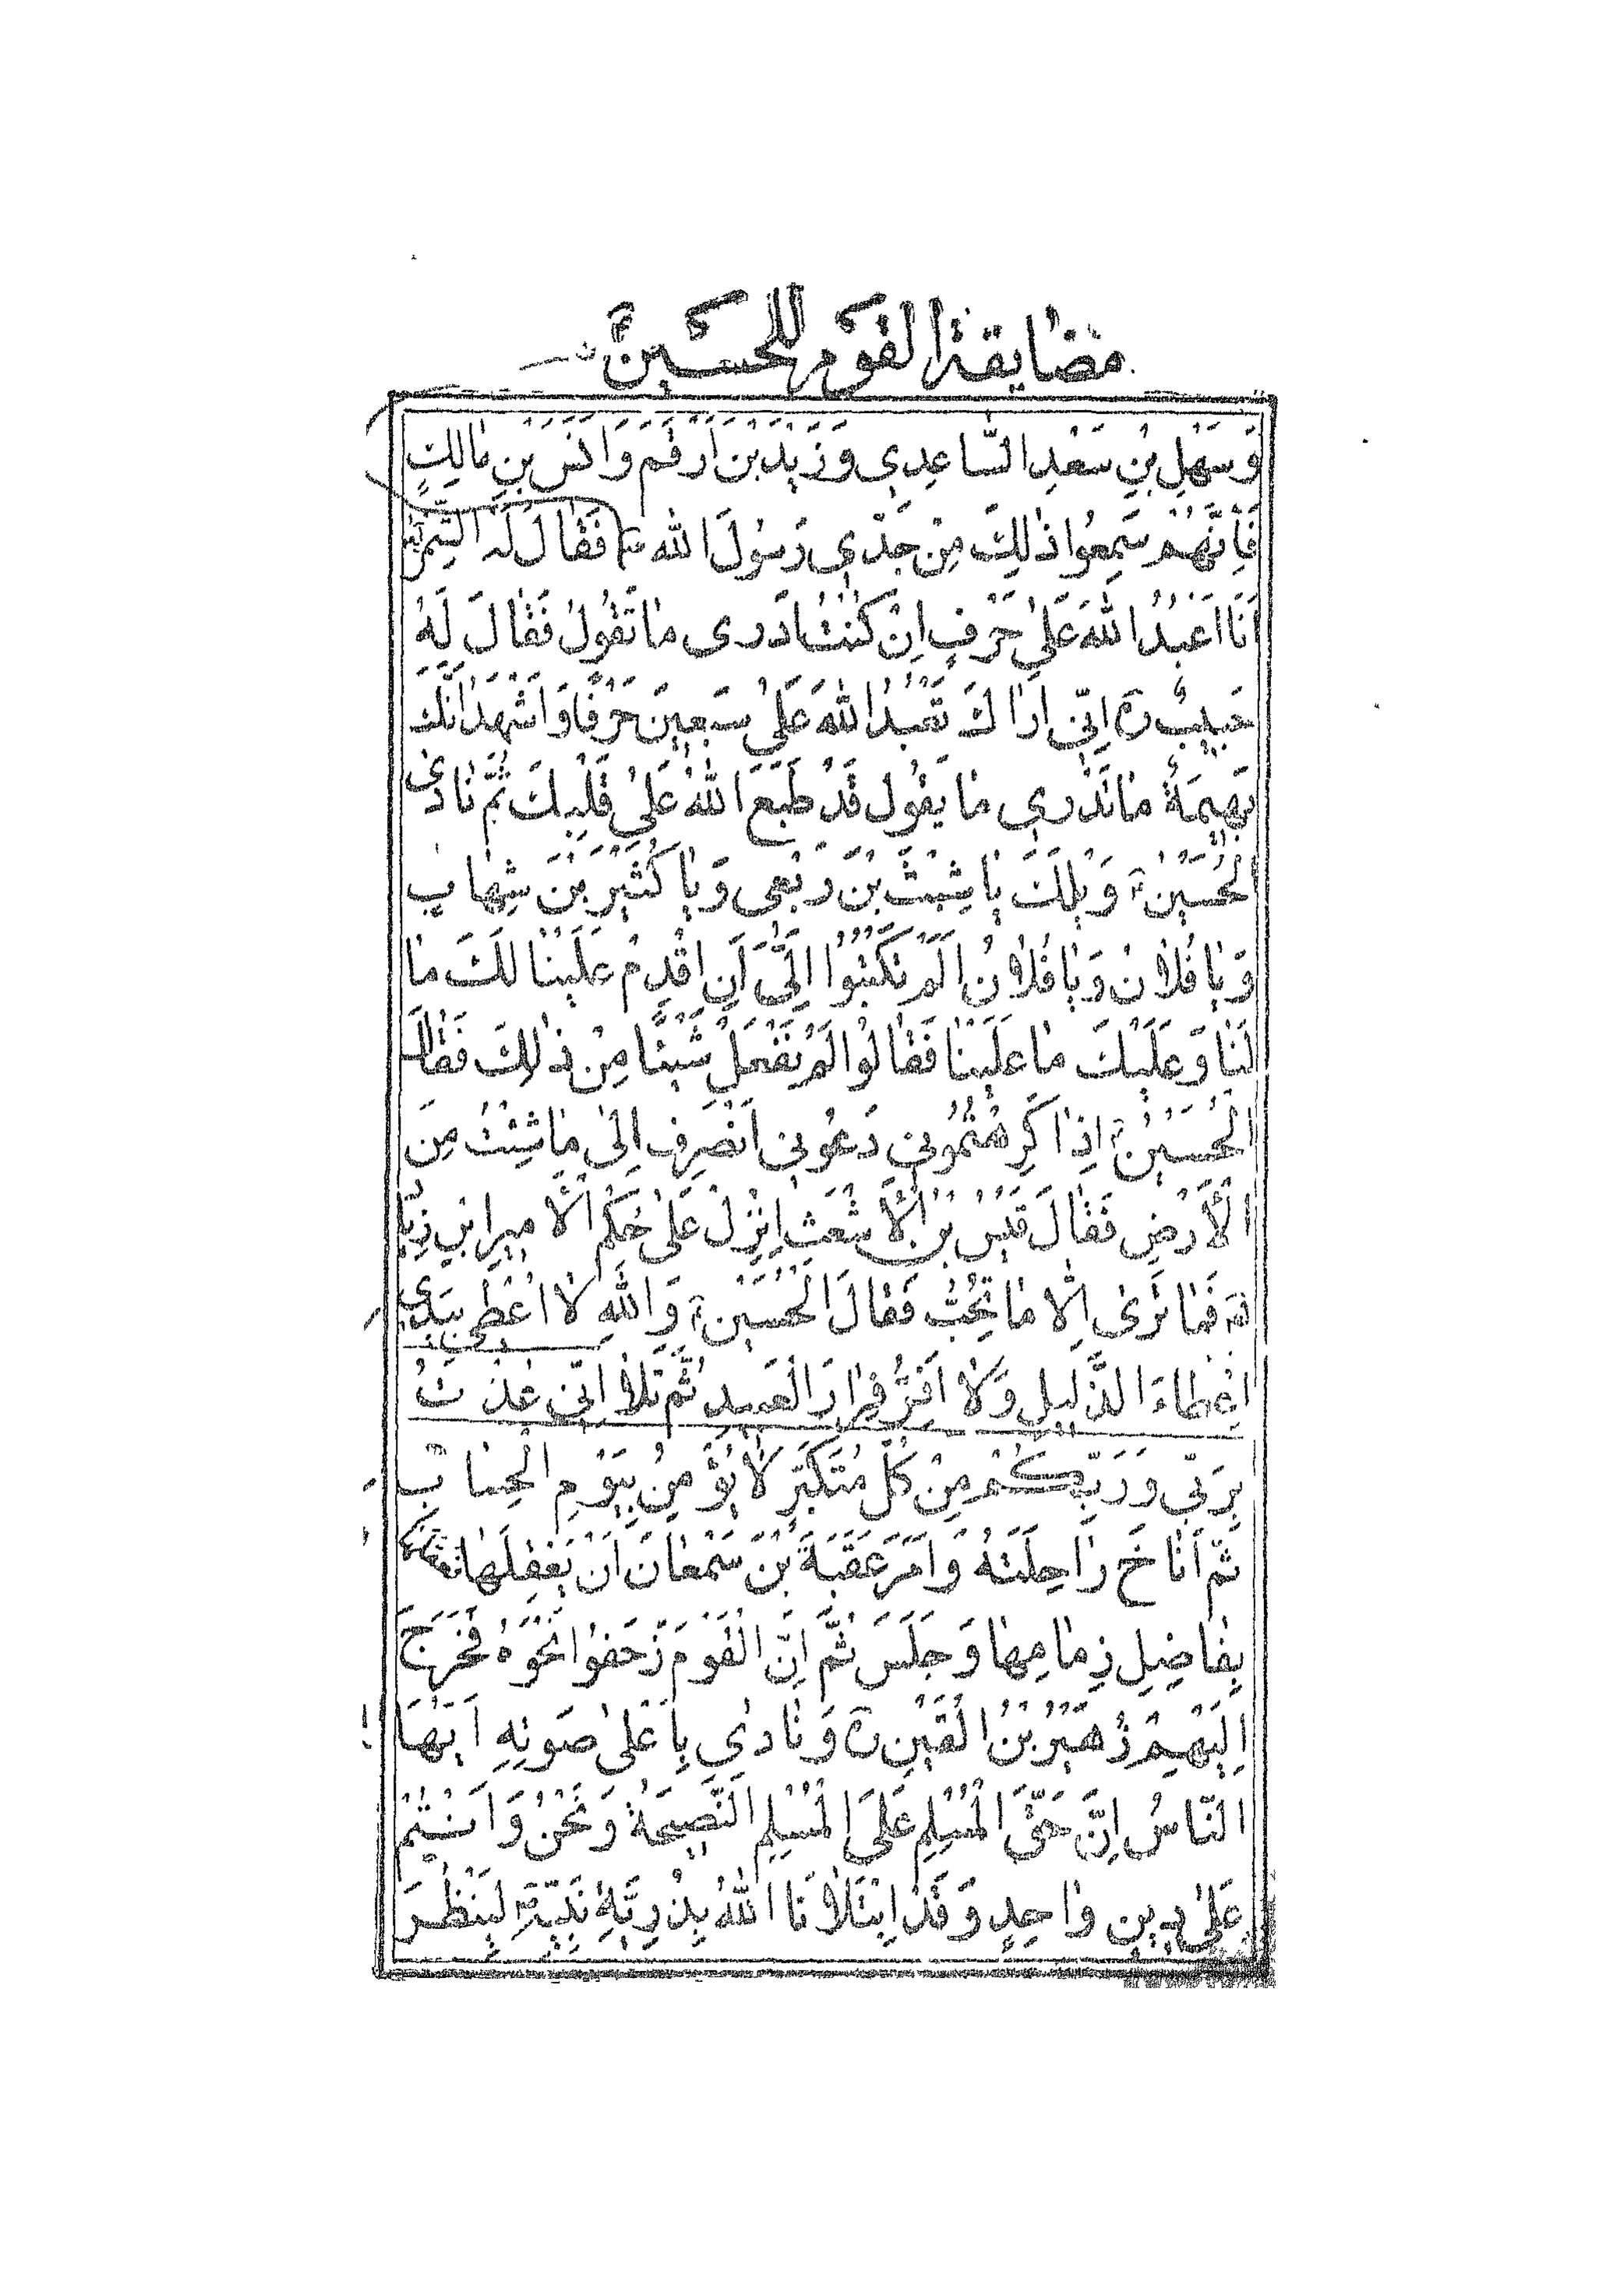 مضايقة القوم للحسين
وَسَهْلِ بْنِ سَعْدِ السَّاعِدِي وَزَيْدِ بْنِ اَرْقَمَ وَاَنَسِ بْنِ مالِكٍ
فَاِنَّهُمْ سَمِعُوا ذٰلِكَ مِنْ جَدّي رَسُولَ اللهِ ص فَقٰالَ لَهُ الشِّمْرُ
اَنَا اَعْبُدُ اللهَ عَلىٰ حَرْفٍ اِنْ كُنْتُ اَدرى مٰا تَقُولُ فَقٰالَ لَهُ
حَبيبٌ ره اِنّي اَرٰاكَ تَعْبُدُ اللهَ عَلىٰ سَبْعِينَ حَرْفًا وَاَشْهَدُ اَنَّكَ
بَهيمَةٌ مٰا تَدْري مٰا يَقُول قَدْ طَبَعَ اللهُ عَلىٰ قَلْبِكَ ثُمَّ نٰادىٰ
الْحُسَيْنُ ع وَيْلَكَ يٰا شِبْثَ بْنَ رَبْعى وَيٰا كَثيرَ بْنَ شِهٰابٍ
وَيٰا فُلٰانُ وَيٰا فُلٰانُ اَلَمْ تَكْتُبُوا اِلَيَّ اَنِ اقْدِمْ عَلَيْنٰا لَكَ مٰا
لَنٰا وَعَلَيْكَ مٰا عَلَيْنٰا فَقٰالُوا لَمْ نَفْعَلْ شَيْئًا مِنْ ذٰلِكَ فَقٰالَ
الْحُسَيْنُ ع اِذٰا كَرِهْتُمُوني دَعُوني اَنْصَرِف اِلىٰ مٰا شِئْتُ مِنَ
الْأَرْضِ فَقٰالَ قَيْسُ بْنُ الْأَشْعَثِ اِنْزِلْ عَلىٰ حُكْمِ الْأَميرِ ابْنِ زِيٰادٍ
فَمٰا تَرىٰ اِلّٰا مٰا تُحِبُّ فَقٰالَ الْحُسَيْنُ ع وَاللهِ لٰا اُعْطي بِيَدي
اِعْطٰاءَ الذَّليلِ وَلٰا اَفِرُّ فِرٰارَ الْعَبيدِ ثُمَّ تَلاٰ اِنّي عُذْتُ
بِرَبّي وَرَبِّكُمْ مِنْ كُلِّ مُتَكَبِّرٍ لٰا يُؤْمِنُ بِيَوْمِ الْحِسٰابِ
ثُمَّ أَنٰاخَ رٰاحِلَتَهُ وَاَمَرَ عَقَبَةَ بْنَ سَمْعٰانَ اَنْ يَعْقِلَهٰا
بِفٰاضِلِ زِمٰامِهٰا وَجَلَسَ ثُمَّ اِنَّ الْقَوْمَ زَحَفُوا نَحْوَهُ فَخَرَجَ
اِلَيْهِمْ زُهَيْرُ بْنُ الْقَيْنِ ره وَنٰادي بِاَعْلىٰ صَوتِهِ اَيُّهَا
النّٰاسُ اِنَّ حَقَّ الْمُسْلِمِ عَلَى الْمُسْلِمِ النَّصيحَةُ وَنَحْنُ وَاَنْتُمْ
عَلىٰ دينٍ وٰاحِدٍ وَقَدْ اِبْتَلاٰنَا اللهُ بِذُرِيَّةِ نَبِيِّهِ لِيَنْظُرَ